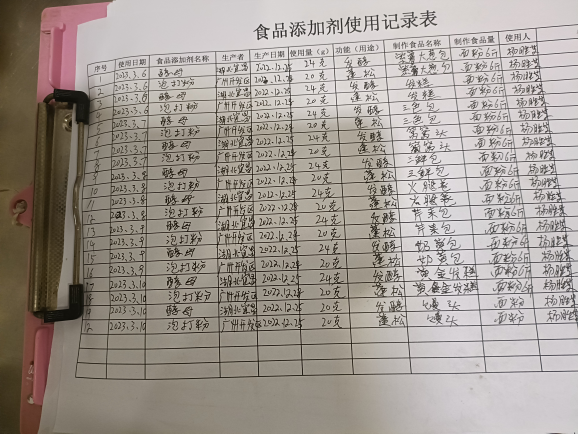 食品添加剂使用记录表
序号 使用日期 食品添加剂名称 生产者 生产日期 使用量（g） 功能（用途） 制作食品名称 制作食品量 使用人
1 2023.3.6 酵母 湖北宜昌 2022.12.25 24克 发酵 大包 面粉6斤
2 2023.3.6 泡打粉 广州开发区 2022.12.25 20克 蓬松 大包 面粉6斤
2023.3.6 酵母 湖北宜昌 2022.12.25 24克 发酵 发糕 面粉6斤
2023.3.6 泡打粉 广州开发区 2022.12.25 20克 蓬松 发糕 面粉6斤
2023.3.7 酵母 湖北宜昌 2022.12.25 24克 发酵 三色包 面粉6斤
2023.3.7 泡打粉 广州开发区 2022.12.25 20克 蓬松 三色包 面粉6斤
2023.3.7 酵母 湖北宜昌 2022.12.25 24克 发酵 窝窝头 面粉6斤
2023.3.7 泡打粉 广州开发区 2022.12.25 20克 蓬松 窝窝头 面粉6斤
9 2023.3.8 酵母 湖北宜昌 2022.12.25 24克 发酵 三鲜包 面粉6斤
10 2023.3.8 泡打粉 广州开发区 2022.12.25 20克 蓬松 三鲜包 面粉6斤
11 2023.3.8 酵母 湖北宜昌 2022.12.25 24克 发酵 火腿卷 面粉6斤
12 2023.3.8 泡打粉 广州开发区 2022.12.25 20克 蓬松 火腿卷 面粉6斤
13 2023.3.9 酵母 湖北宜昌 2022.12.25 24克 发酵 芹菜包 面粉6斤
14 2023.3.9 泡打粉 广州开发区 2022.12.25 20克 蓬松 芹菜包 面粉6斤
15 2023.3.9 酵母 湖北宜昌 2022.12.25 24克 发酵 奶黄包 面粉6斤
16 2023.3.9 泡打粉 广州开发区 2022.12.25 20克 蓬松 奶黄包 面粉6斤
17 2023.3.10 酵母 湖北宜昌 2022.12.25 24克 发酵 黄金发糕 面粉6斤
18 2023.3.10 泡打粉 广州开发区 2022.12.25 20克 蓬松 黄金发糕 面粉6斤
2023.3.10 酵母 湖北宜昌 2022.12.25 24克 发酵 馒头 面粉
2023.3.10 泡打粉 广州开发区 2022.12.25 20克 蓬松 馒头 面粉